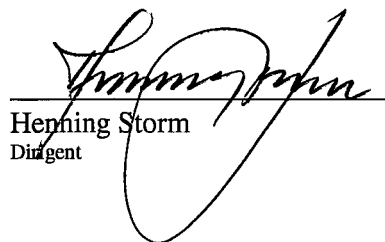 Henning Storm
Dirigent